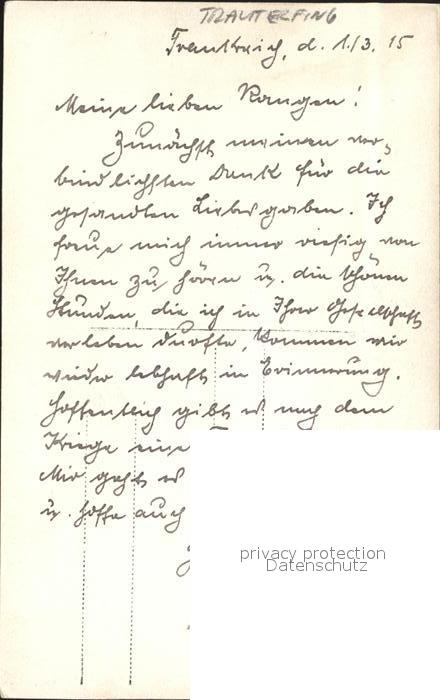 TRAUTERFING
Frankreich, d. 1./3. 15
Meine lieben Rangen!
Zunächst meinen ver-
bindlichsten Dank für die
gesandten Liebesgaben. Ich
freue mich immer riesig von
Ihnen zu hören u. die schönen
Stunden, die ich in Ihrer Gesellschaft
verleben durfte, kommen mir
wieder lebhaft in Erinnerung.
Hoffentlich gibt es nach dem
Kriege eine
Mir geht es
u. hoffe auch
privacy protection
Datenschutz